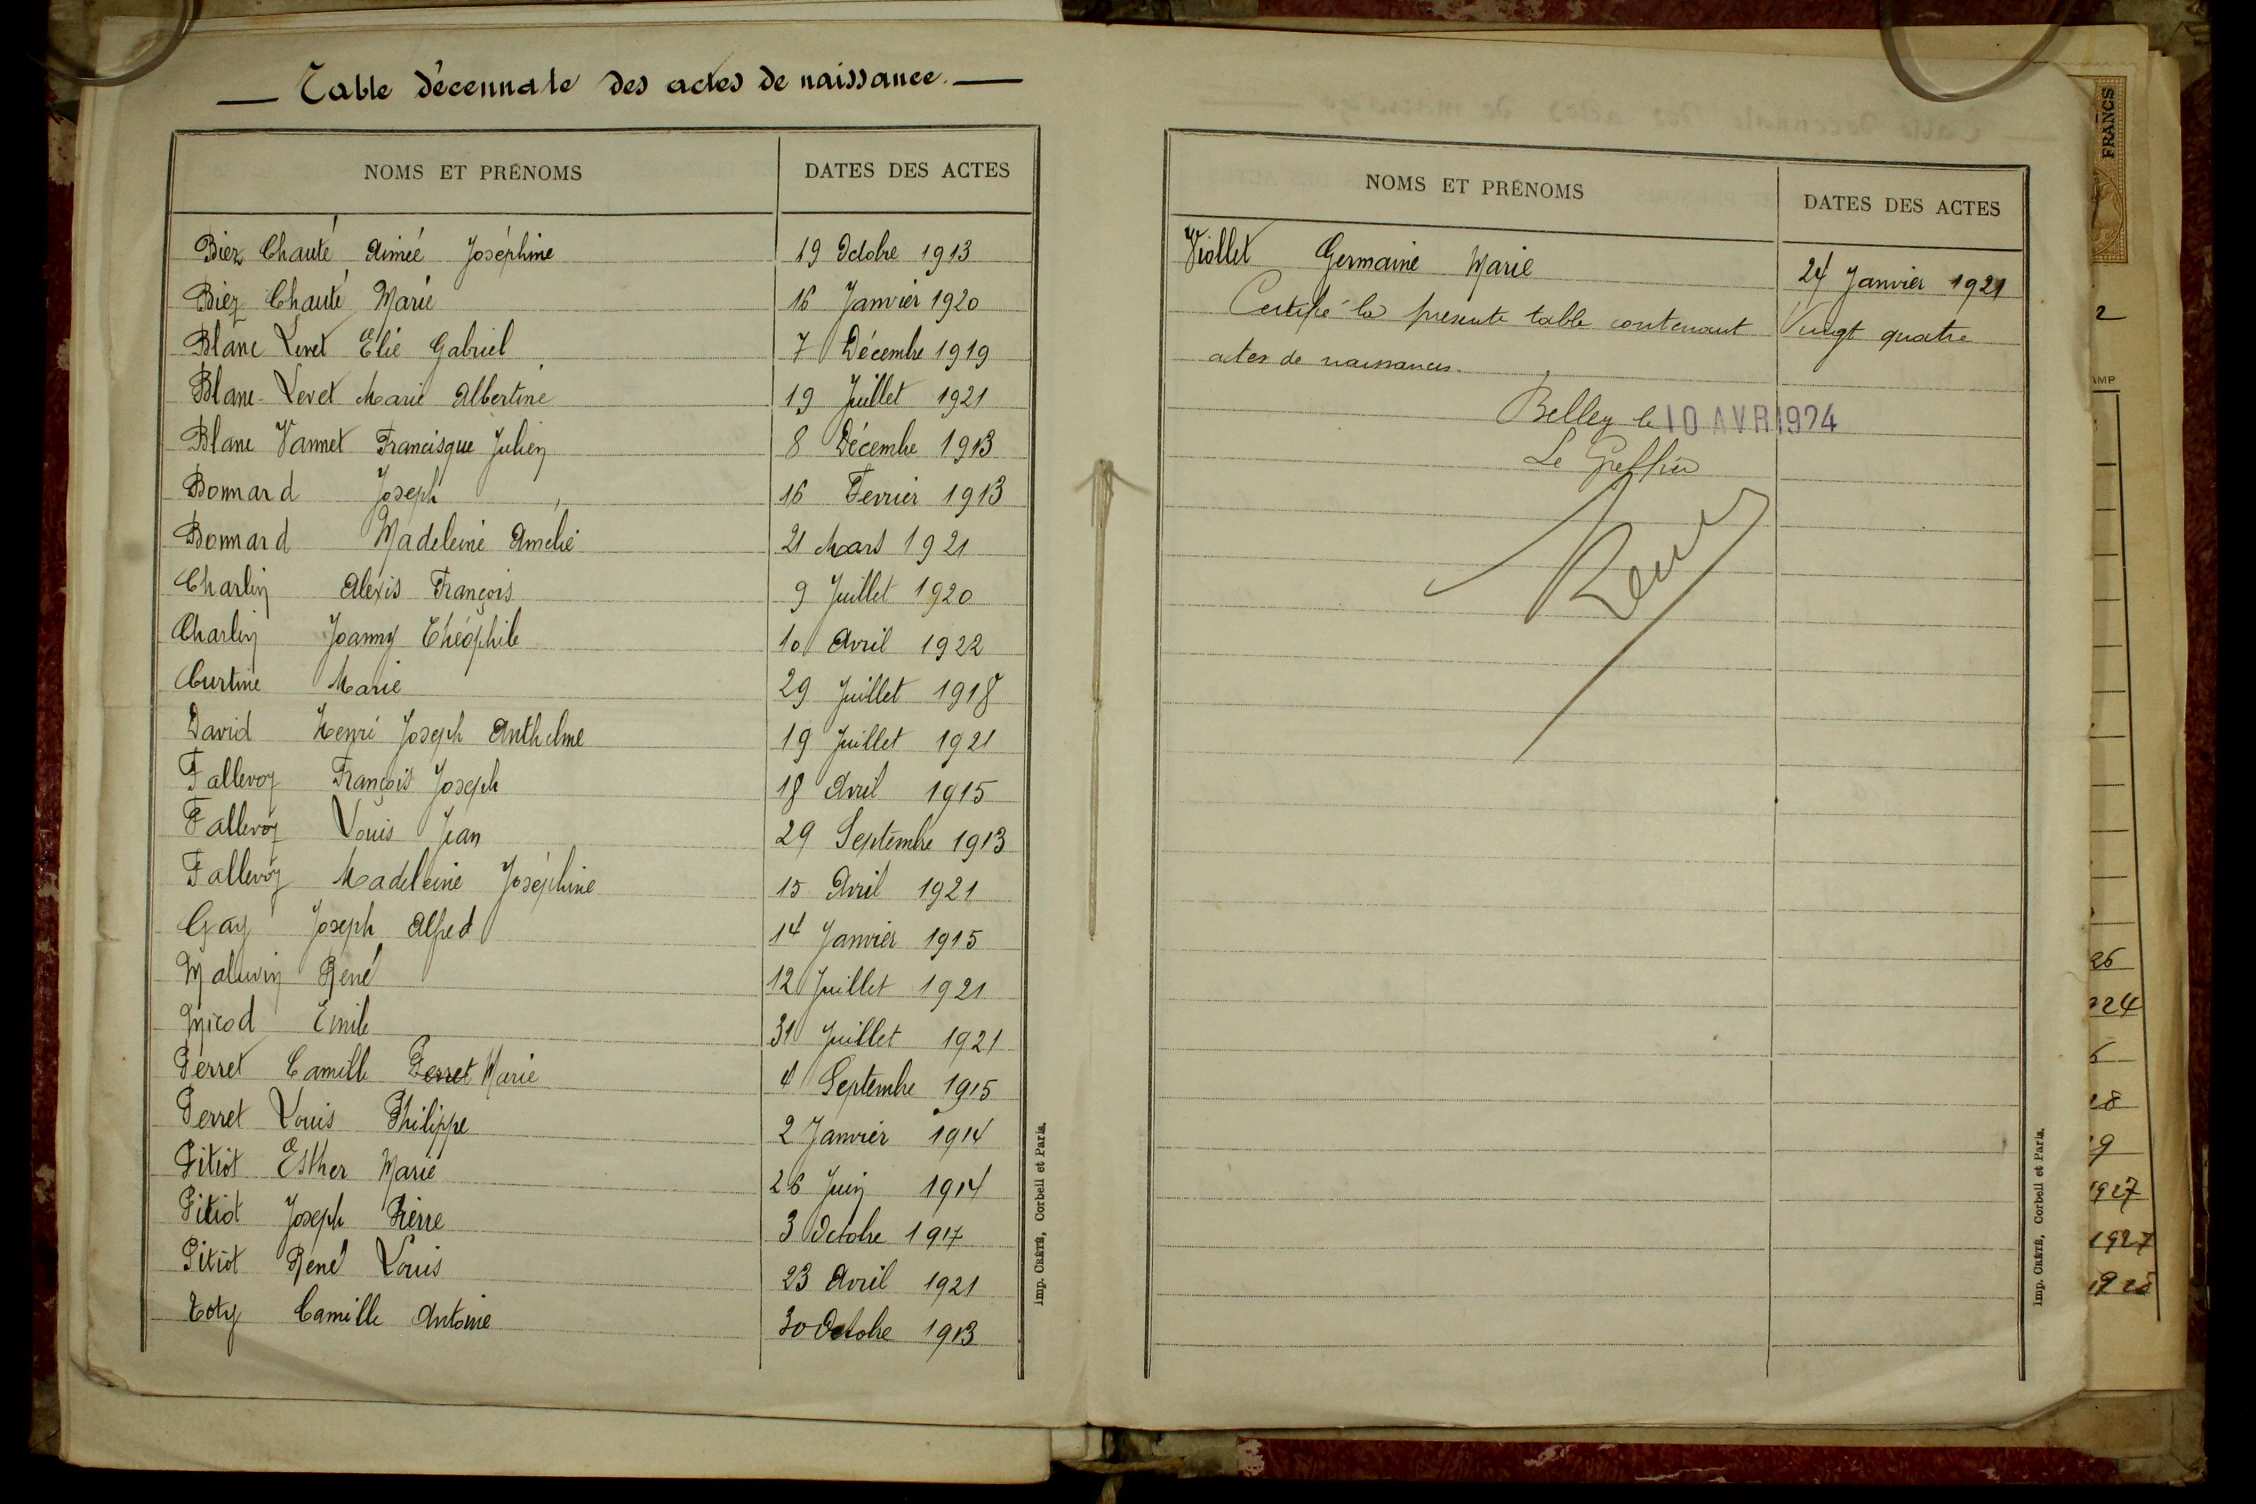 Table décennale des actes de naissance.
NOMS ET PRÉNOMS DATES DES ACTES
Biez Chauté Aimée Joséphine 19 Octobre 1913
Biez Chauté Marie 16 Janvier 1920
Blanc Levet Élie Gabriel 7 Décembre 1919
Blanc-Levet Marie Albertine 19 Juillet 1921
Blanc Vannet Francisque Julien 8 Décembre 1913
Bonnard Joseph 16 Fevrier 1913
Bonnard Madeleine Amélie 21 Mars 1921
Charlin Alexis François 9 Juillet 1920
Charlin Joanny Théophile 10 Avril 1922
Curtine Marie 29 Juillet 1918
David Henri Joseph Anthelme 19 Juillet 1921
Fallevoz François Joseph 18 Avril 1915
Fallevoz Louis Jean 29 Septembre 1913
Fallevoz Madeleine Joséphine 15 Avril 1921
Gay Joseph Alfred 14 Janvier 1915
René 12 Juillet 1921
Micod Emile 31 Juillet 1921
Perret Camille Perret Marie 4 Septembre 1915
Perret Louis Philippe 2 Janvier 1914
Pitiot Esther Marie 26 Juin 1914
Pitiot Joseph Pierre 3 Octobre 1917
Pitiot René Louis 23 Avril 1921
Toty Camille Antoine 30 Octobre 1913
Imp. CRÉTÉ, Corbeil et Paris.
NOMS ET PRÉNOMS DATES DES ACTES
Viollet Germaine Marie 24 Janvier 1921
Certifié la presente table contenant Vingt quatre
actes de naissances.
Belley le 10 AVR 1924
Le Greffier
Imp. CRÉTÉ, Corbeil et Paris.
FRANCS
2
AMP
26
924
28
9
1927
1927